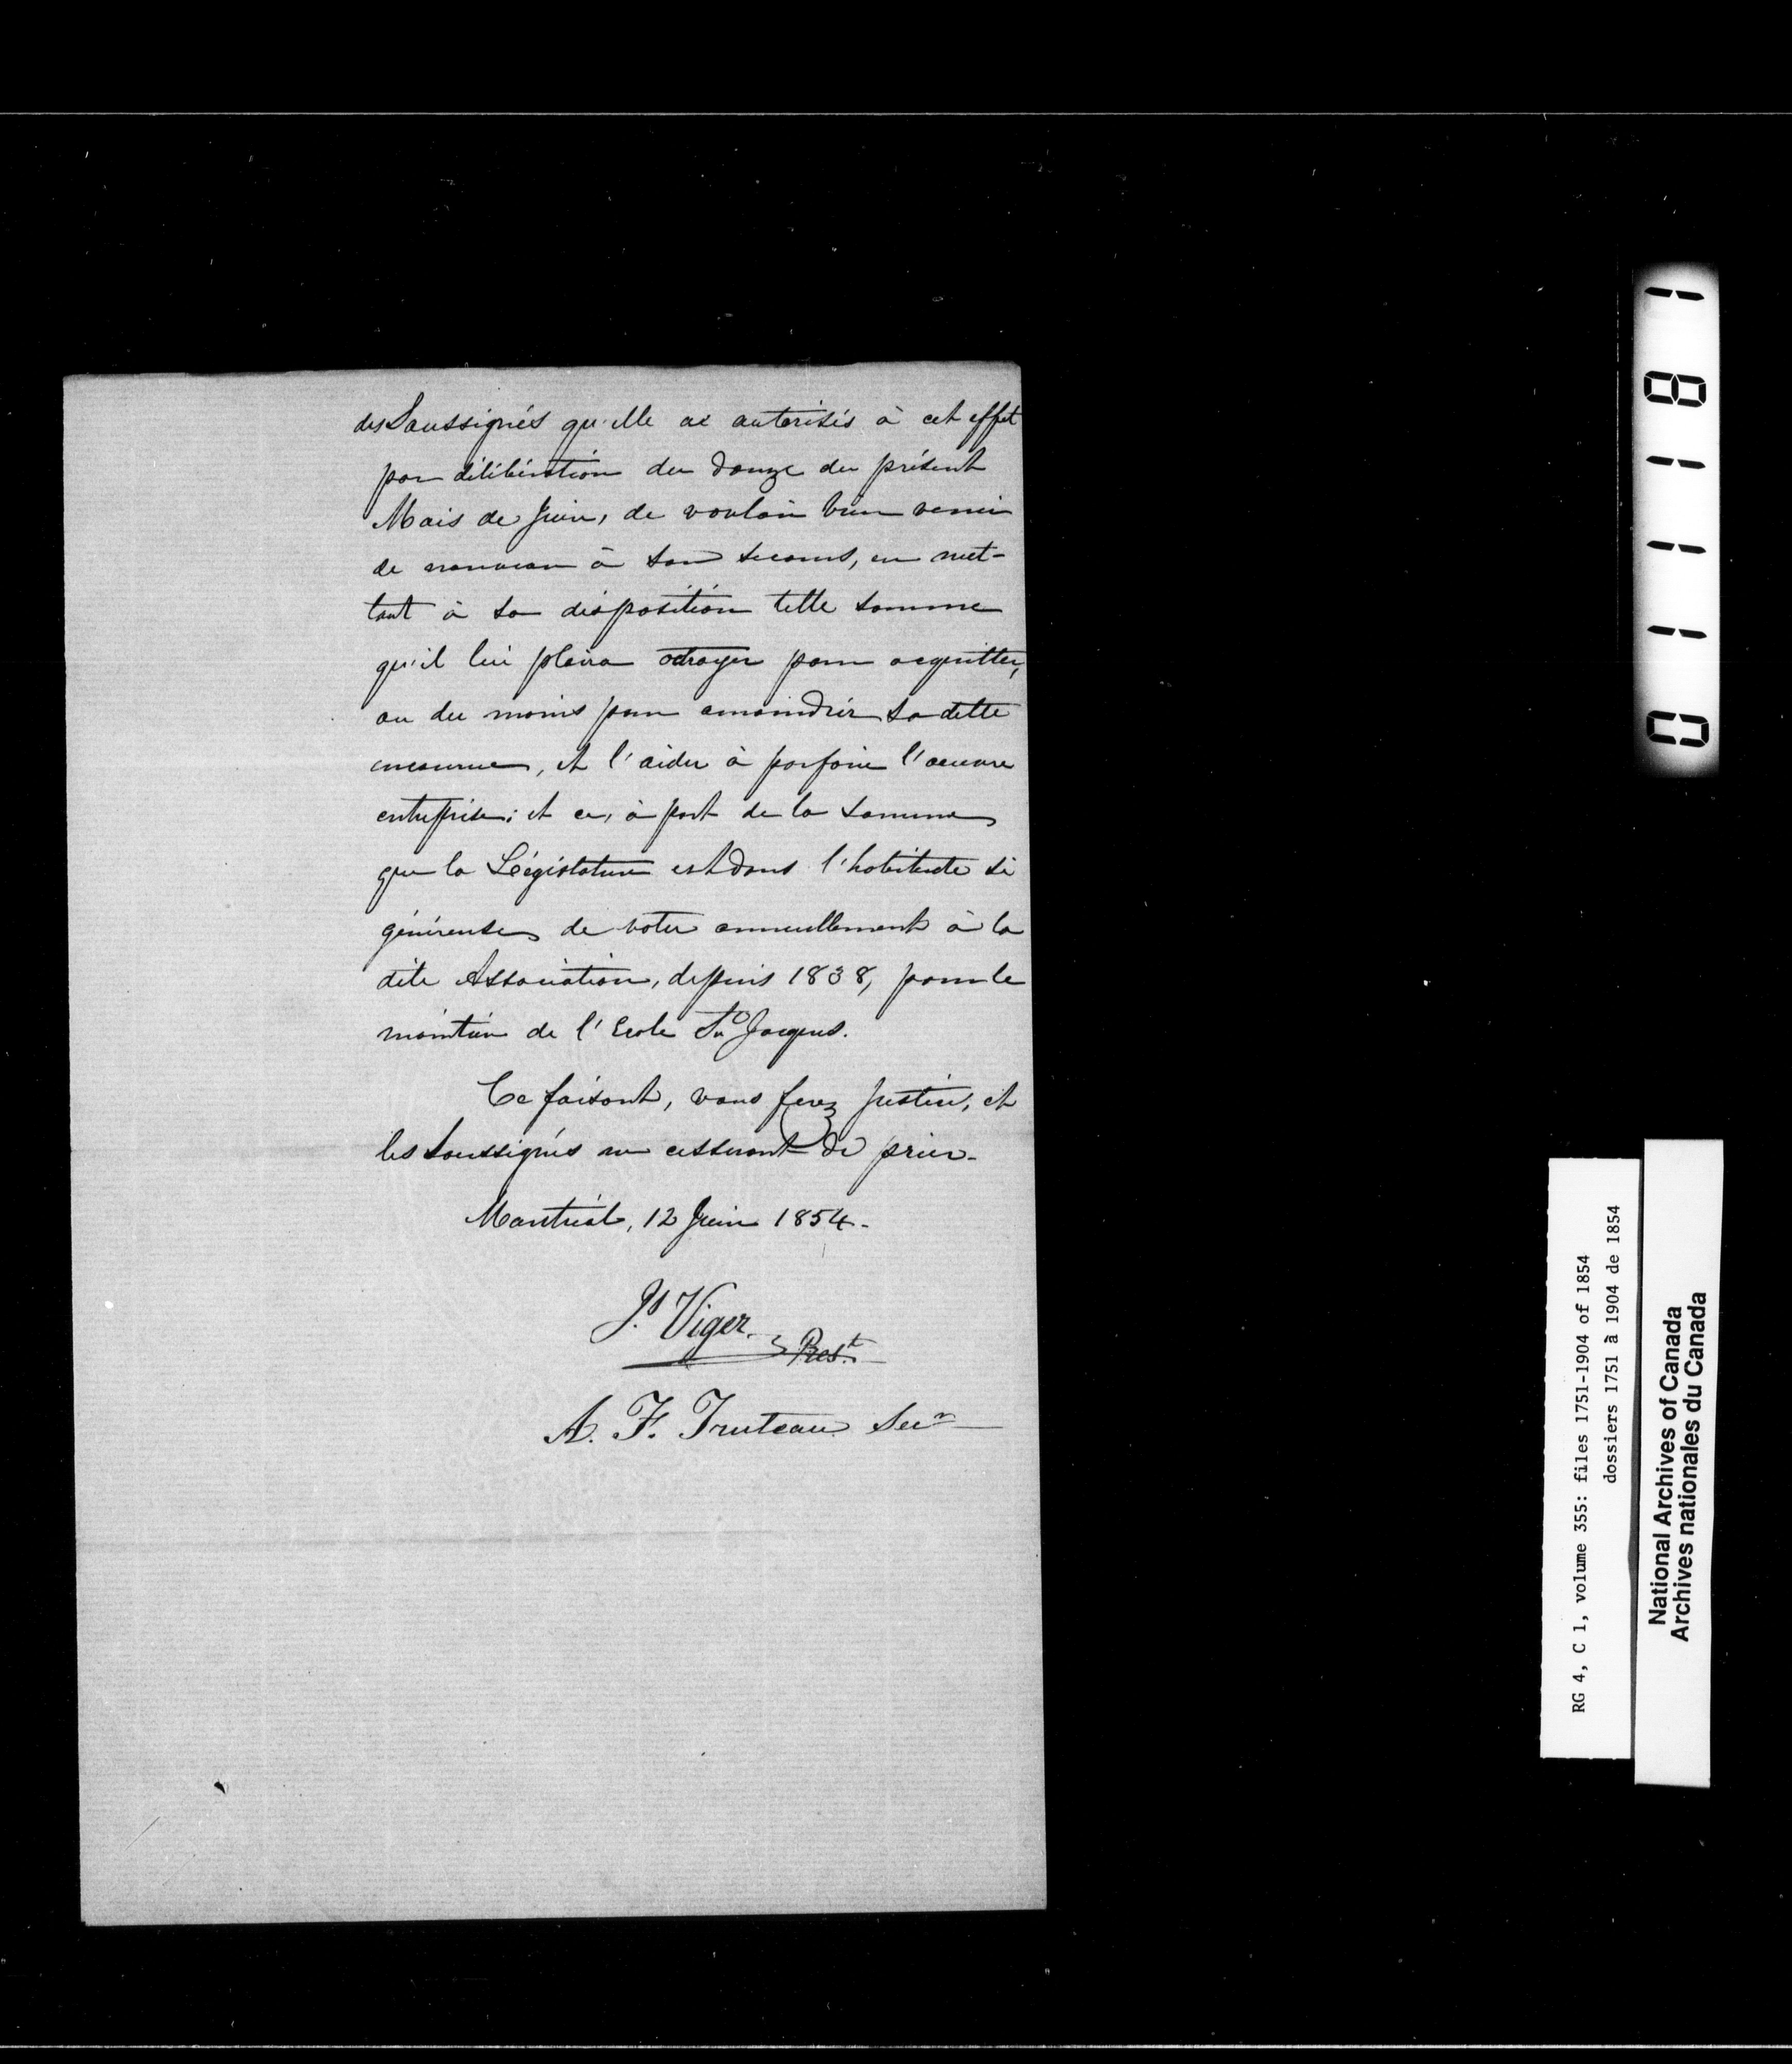 des Soussignés qu'elle a autorisés à cet effet
par délibération du douze du présent
Mois de Juin, de vouloir bien venir
de nouveau à son secours, en met-
tant à sa disposition telle somme
qu'il lui plaira octroyer pour acquitter,
ou du moins pour amoindrir sa dette
encourue, et l'aider à parfaire l'œuvre
entreprise; et ce, à part de la somme
que la Législature est dans l'habitude si
généreuse de voter annuellement à la
dite Association, depuis 1838, pour le
maintien de l'Ecole St Jacques.
Ce faisant, vous ferez justice, et
les soussignés ne cesseront de prier.
Montréal, 12 Juin 1854.
Js. Viger.
Prest.
A. F. Truteau Secre
01181
RG 4, C 1, volume 355: files 1751-1904 of 1854
dossiers 1751 à 1904 de 1854
National Archives of Canada
Archives nationales du Canada